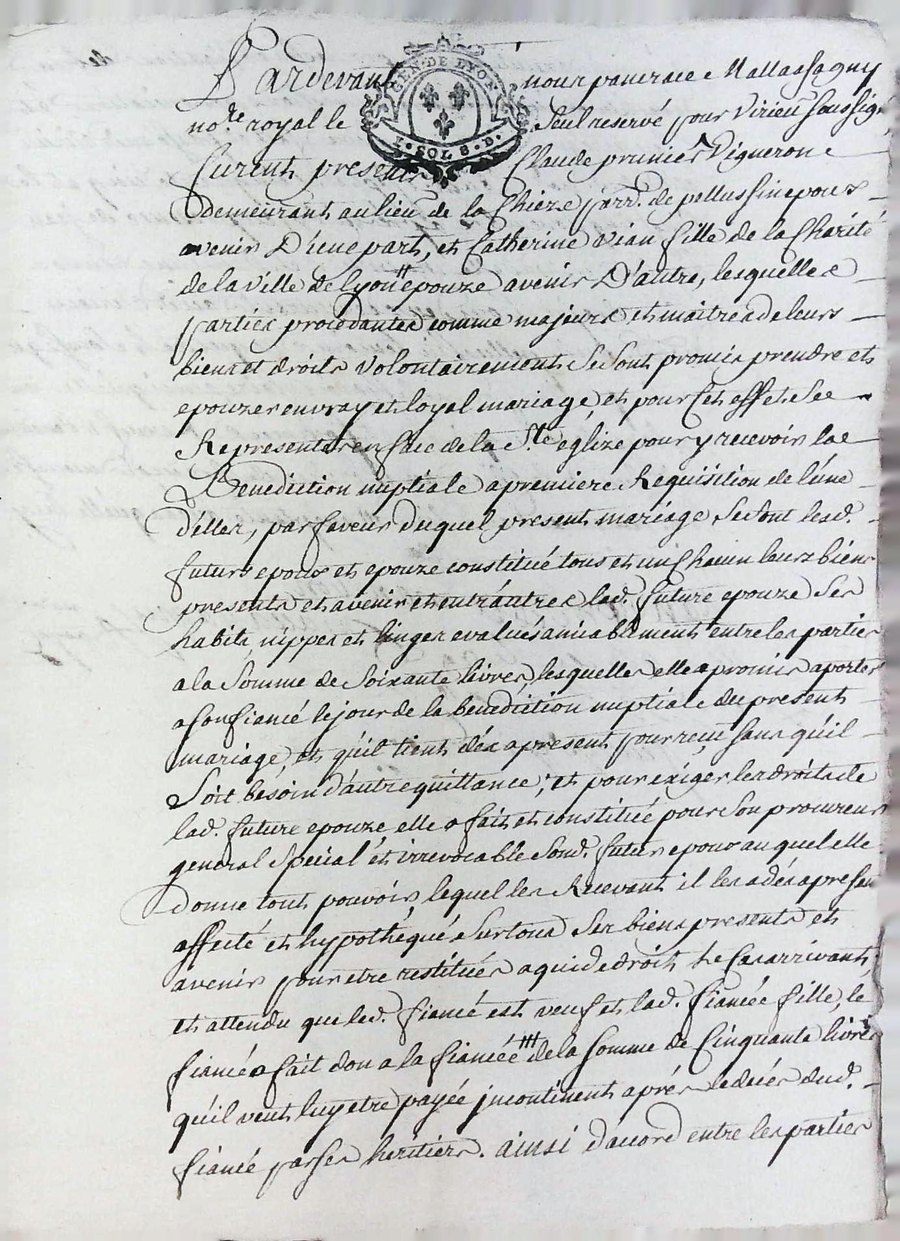 Pardevant nous pancrace Mallassagny
GEN·DE LYON
1·SOL 8·D·
no.re royal le Seul reservé pour Virieu soussigné
furent presents Claude prunier Vigneron
demeurant au lieu de la Chieze parr. de pellussin epoux
avenir D'une part, et Catherine vian fille de la Charité
de la ville de lyon epouze avenir D'autre, lesquelles
parties procedantes comme majeurs et maitres de leurs
biens et droits volontairement se sont promis prendre et
epouzer en vray et loyal mariage, et pour cet effet se
Representer en face de la Ste eglize pour y recevoir la
Benediction nuptiale a premiere Requisition de l'une
d'elles, par faveur duquel present mariage se sont lesd.
futurs epoux et epouze constitué tous et un chacun leurs biens
presents et avenir et entrautres lad. future epouze ses
habits nippes et linges evalués amiablement entre les parties
a la Somme de Soixante livres, lesquelles elle a promis aporter
a son fiancé le jour de la benediction nuptiale du present
mariage, et qu'il tient dés apresent pour recu sans qu'il
Soit besoin d'autre quittance, et pour exiger les droits de
lad. future epouze elle a fait et constitué pour Son procureur
general Special et irrevocable Sond. futur epoux auquel elle
donne tout pouvoir, lequel les Recevant il les a dés apresent
affecté et hypothéqué Sur tous Ses biens presents et
avenir pour etre restitués a qui de droit le cas arrivant,
et attendu que led. fiancé est veuf et lad. fiancée fille, le
fiancé a fait don a la fiancée de la Somme de Cinquante livres
qu'il veut luy etre payée incontinent aprés le decés dud.
fiancé par ses heritiers. ainsi d'accord entre les parties